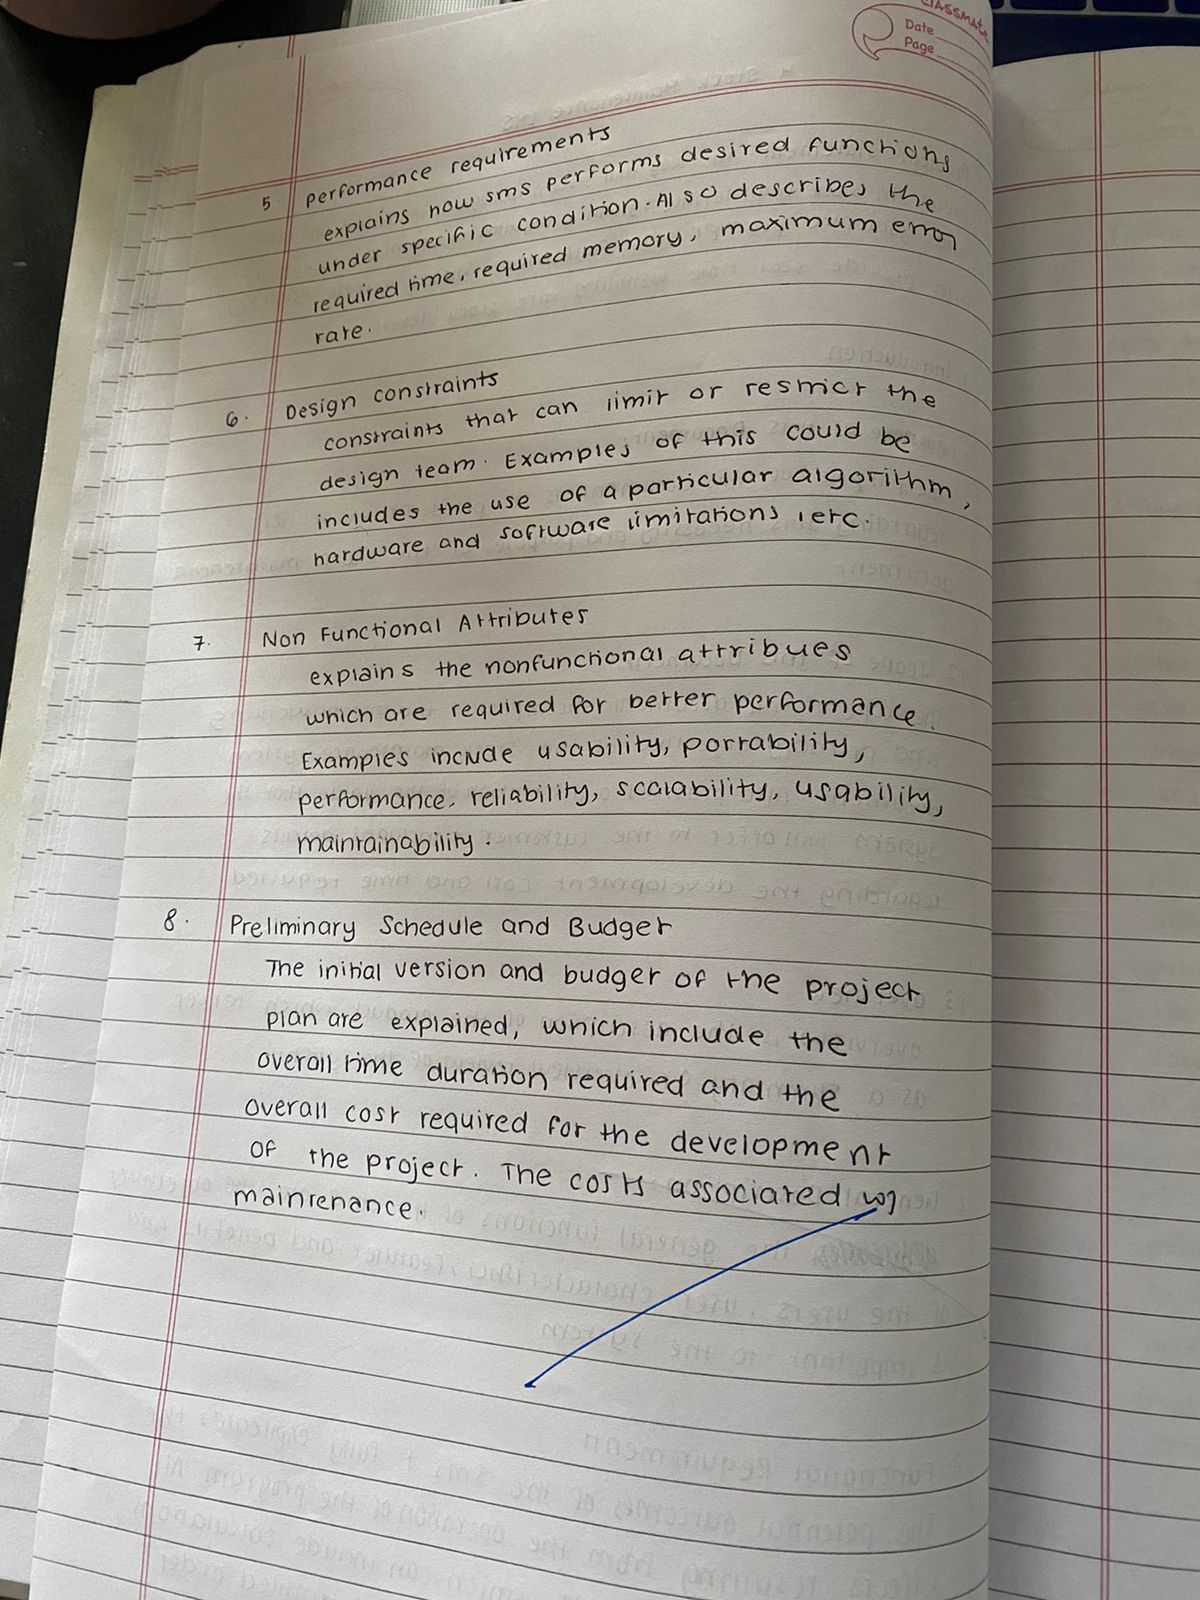 classmate
Date
Page
5 performance requirements
explains how sms performs desired functions
under specific condition. Also describes the
required time, required memory, maximum error
rate.
6. Design constraints
constraints that can limit or restrict the
design team. Examples of this could be
includes the use of a particular algorithm,
hardware and software limitations, etc.
7. Non Functional Attributes
explains the nonfunctional attribues
which are required for better performance.
Examples include usability, portability,
performance, reliability, scalability, usability,
maintainability.
8. Preliminary Schedule and Budget
The initial version and budget of the project
plan are explained, which include the
overall time duration required and the
overall cost required for the development
of the project. The costs associated
maintenance.